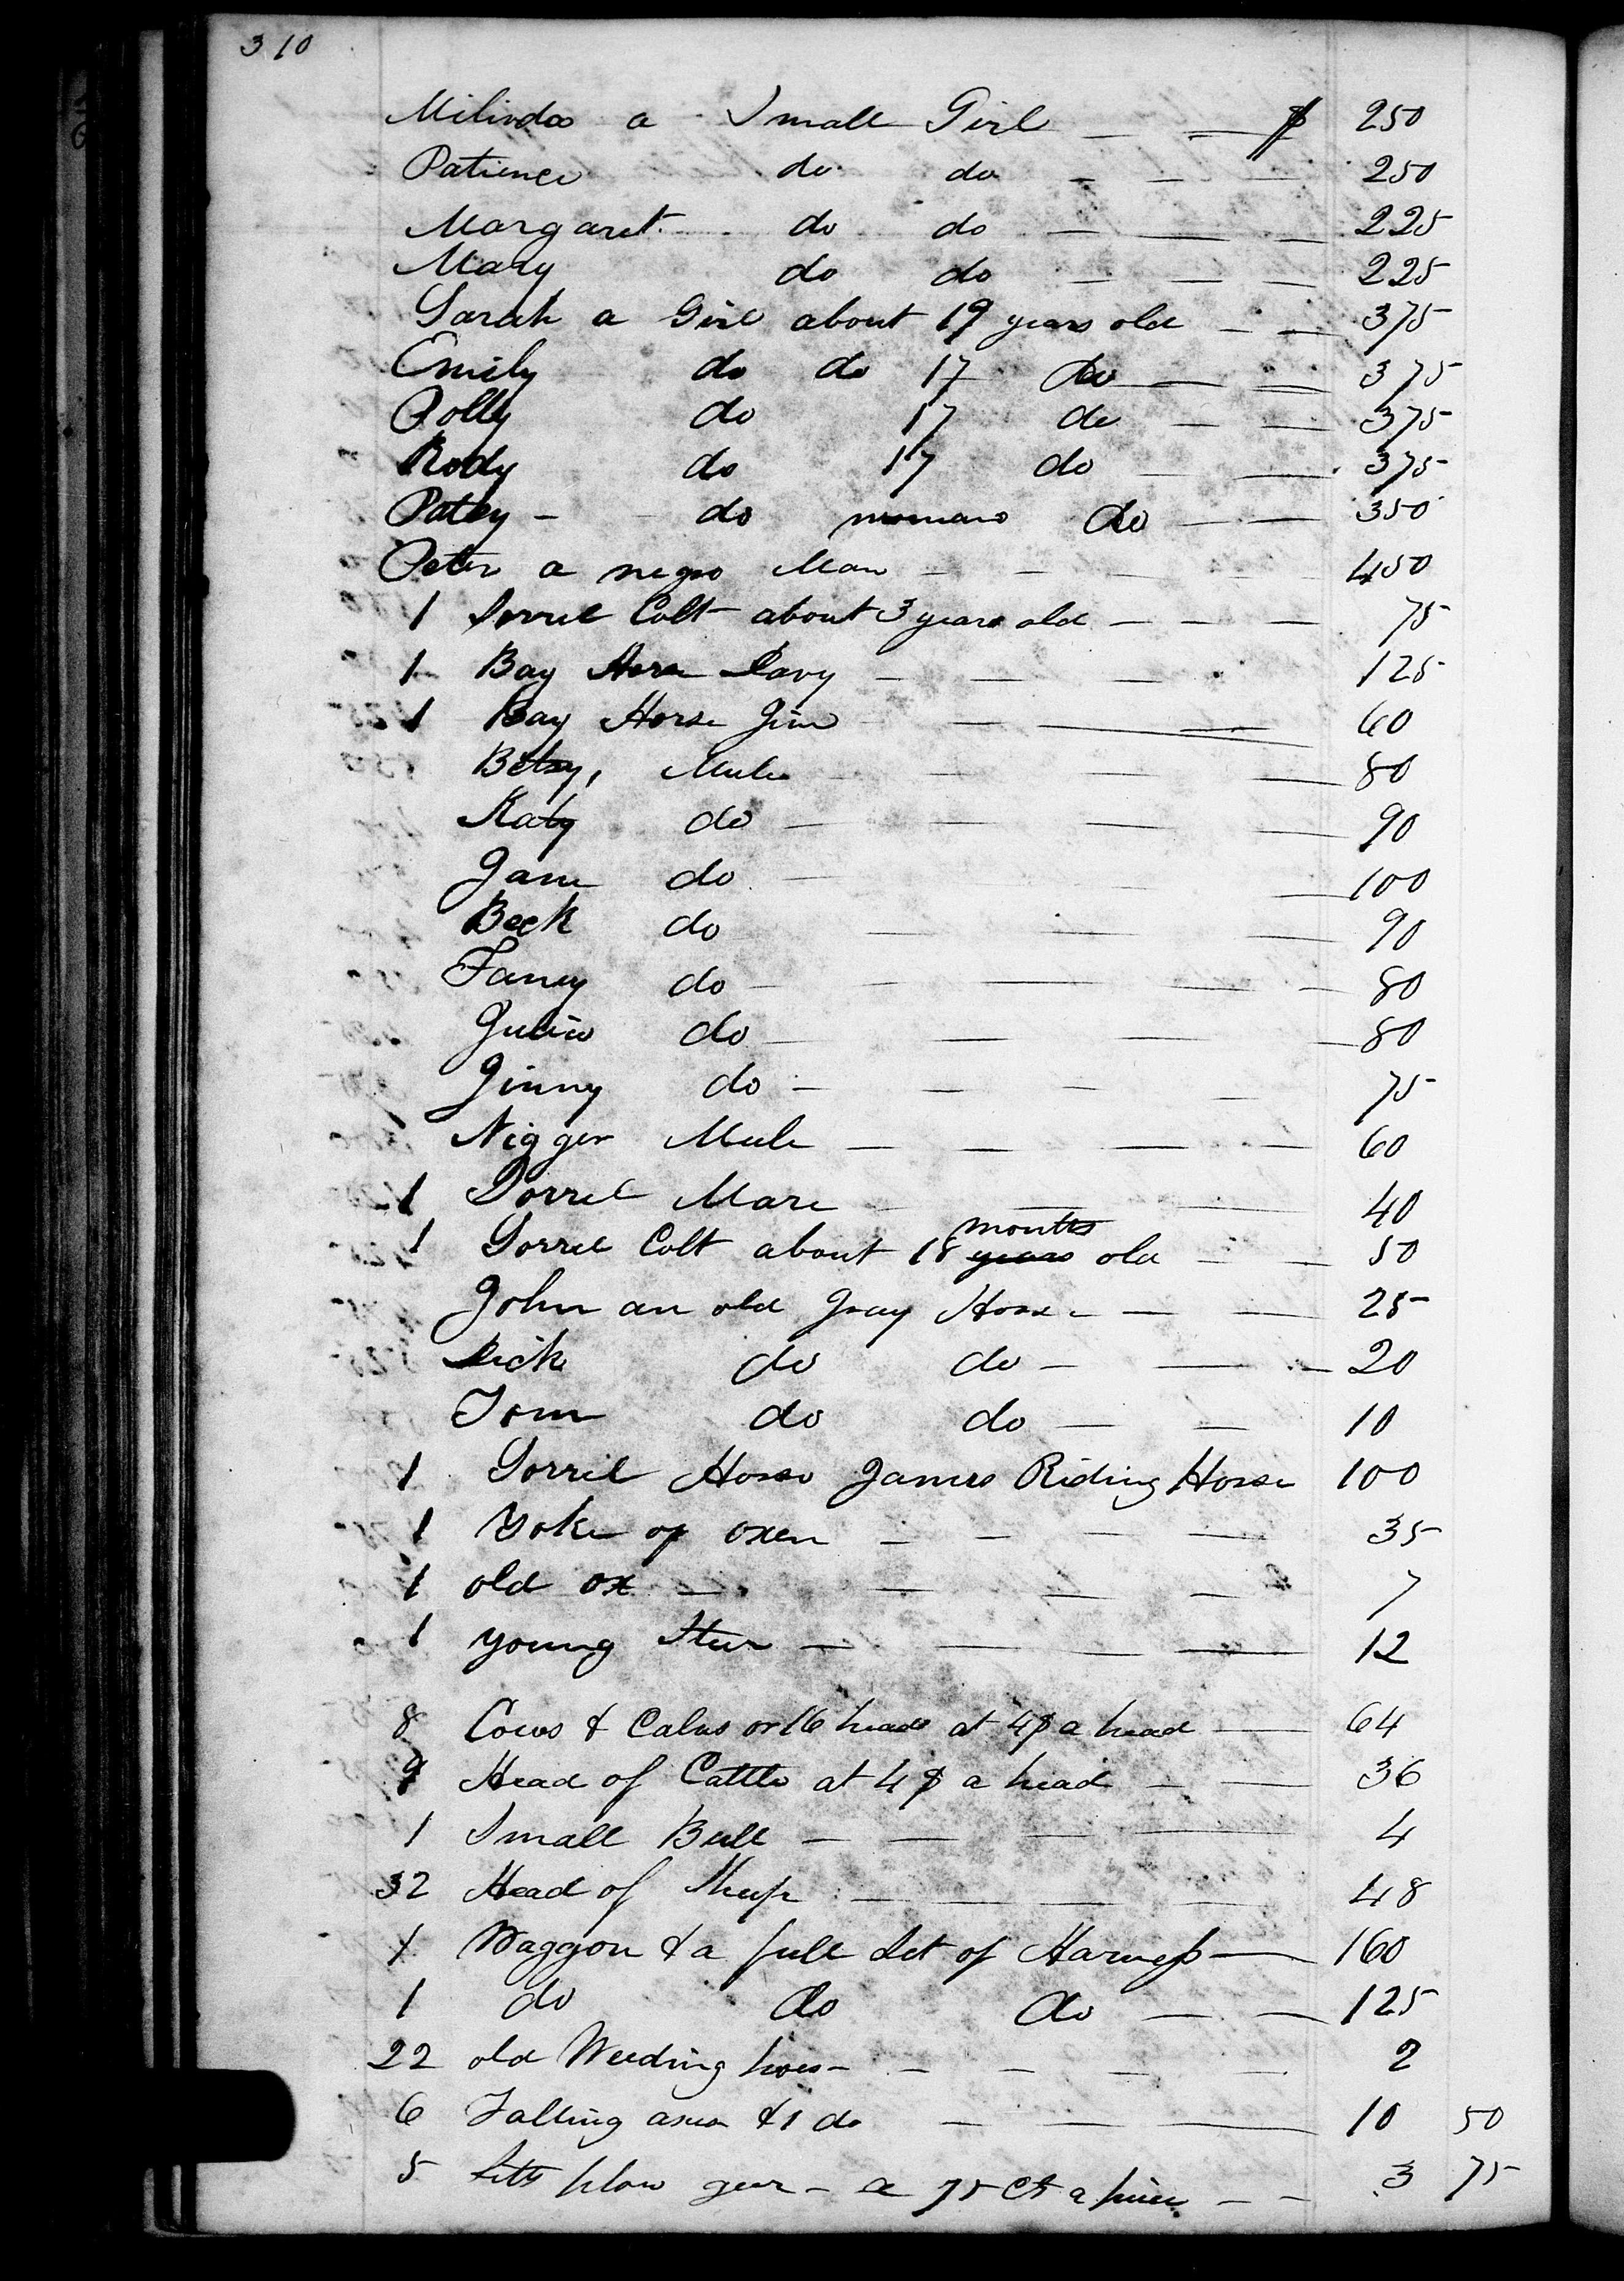 310
Milinda a Small Girl $ 250
Patience do do 250
Margaret do do 225
Mary do do 225
Sarah a Girl about 19 years old 375
Emily do do 17 do 375
Polly do 17 do 375
Rody do 17 do 375
Patsy do woman do 350
Peter a negro Man 450
1 Sorrel Colt about 3 years old 75
1 Bay Horse Davy 125
1 Bay Horse Jim 60
Betsy, Mule 80
Katy do 90
Jane do 100
Beck do 90
Fancy do 80
do 80
Jinny do 75
Nigger Mule 60
1 Sorrel Mare 40
1 Sorrel Colt about 18 years months old 50
John an old Gray Horse 25
Dick do do 20
Tom do do 10
1 Sorrel Horse James Riding Horse 100
1 Yoke of oxen 35
1 old ox 7
1 young Steer 12
8 Cows & Calves or 16 head at 4$ a head 64
9 Head of Cattle at 4$ a head 36
1 Small Bull 4
32 Head of Sheep 48
1 Waggon & a full Set of Harness 160
1 do do do 125
22 old Weeding hoes 2
6 Falling axes & 1 do 10 50
5 Setts plow gear a 75 Ct a piece 3 75